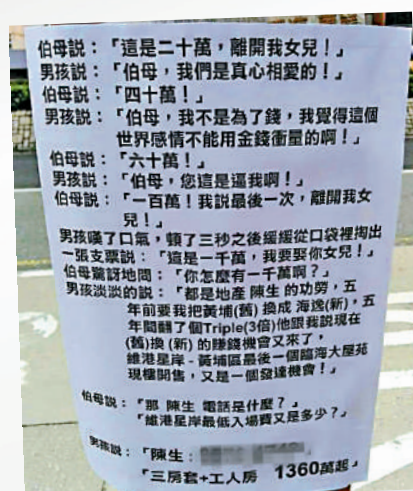 伯母説：「這是二十萬，離開我女兒！」
男孩説：「伯母，我們是真心相愛的！」
伯母説：「四十萬！」
男孩説：「伯母，我不是為了錢，我覺得這個
世界感情不能用金錢衡量的啊！」
伯母説：「六十萬！」
男孩説：「伯母，您這是逼我啊！」
伯母説：「一百萬！我説最後一次，離開我女
兒！」
男孩嘆了口氣，頓了三秒之後緩緩從口袋裡掏出
一張支票説：「這是一千萬，我要娶你女兒！」
伯母驚訝地問：「你怎麼有一千萬啊？」
男孩淡淡的説：「都是地產 陳生 的功勞，五
年前要我把黃埔(舊) 換成 海逸(新)，五
年間翻了個Triple(3倍)他跟我説現在
(舊)換 (新) 的賺錢機會又來了，
維港星岸 - 黃埔區最後一個臨海大屋苑
現樓開售，又是一個發達機會！」
伯母説：「那 陳生 電話是什麼？」
「維港星岸最低入場費又是多少？」
男孩説：「陳生：
「三房套+工人房 1360萬起」